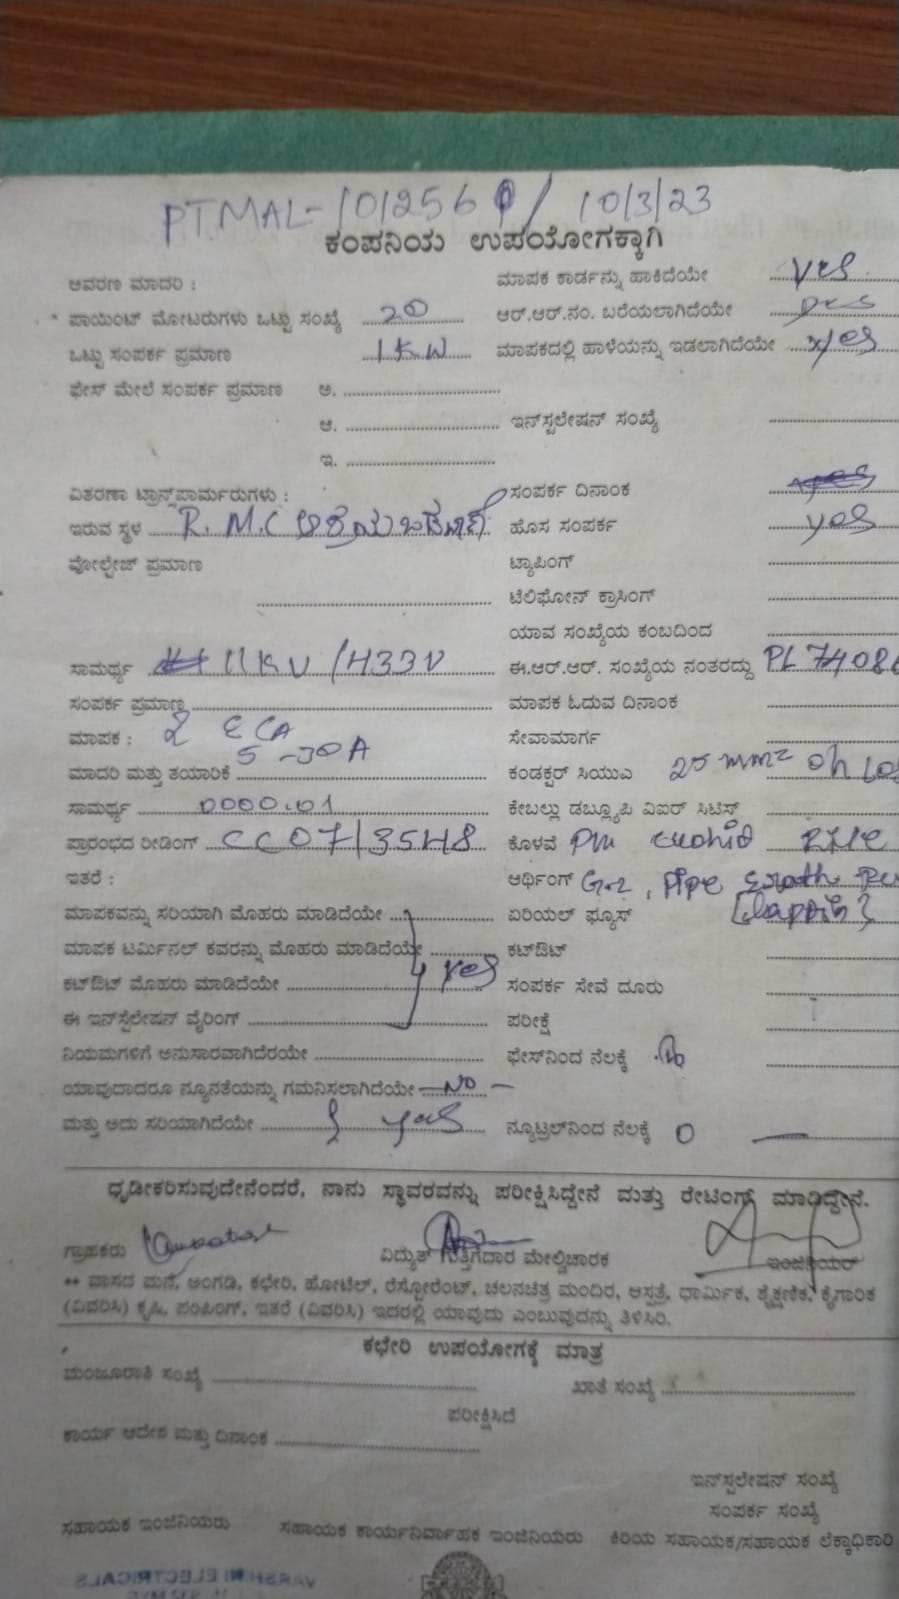 PTMAL-101256 / 10/3/23
ಕಂಪನಿಯ ಉಪಯೋಗಕ್ಕಾಗಿ
ಆವರಣ ಮಾದರಿ : ಮಾಪಕ ಕಾರ್ಡನ್ನು ಹಾಕಿದೆಯೇ yes
* ಪಾಯಿಂಟ್ ಮೋಟರುಗಳು ಒಟ್ಟು ಸಂಖ್ಯೆ 20 ಆರ್.ಆರ್.ನಂ. ಬರೆಯಲಾಗಿದೆಯೇ yes
ಒಟ್ಟು ಸಂಪರ್ಕ ಪ್ರಮಾಣ 1KW ಮಾಪಕದಲ್ಲಿ ಹಾಳೆಯನ್ನು ಇಡಲಾಗಿದೆಯೇ yes
ಫೇಸ್ ಮೇಲೆ ಸಂಪರ್ಕ ಪ್ರಮಾಣ ಅ.
ಆ. ಇನ್‌ಸ್ಟಲೇಷನ್ ಸಂಖ್ಯೆ
ಇ.
ವಿತರಣಾ ಟ್ರಾನ್ಸ್‌ಪಾರ್ಮರುಗಳು : ಸಂಪರ್ಕ ದಿನಾಂಕ
ಇರುವ ಸ್ಥಳ R.M.C ಹೊಸ ಸಂಪರ್ಕ yes
ವೋಲ್ಟೇಜ್ ಪ್ರಮಾಣ ಟ್ಯಾಪಿಂಗ್
ಟೆಲಿಫೋನ್ ಕ್ರಾಸಿಂಗ್
ಯಾವ ಸಂಖ್ಯೆಯ ಕಂಬದಿಂದ
ಸಾಮರ್ಥ್ಯ 11KV/433V ಈ.ಆರ್.ಆರ್. ಸಂಖ್ಯೆಯ ನಂತರದ್ದು
ಸಂಪರ್ಕ ಪ್ರಮಾಣ ಮಾಪಕ ಓದುವ ದಿನಾಂಕ
ಮಾಪಕ : ಸೇವಾಮಾರ್ಗ
5-30A
ಮಾದರಿ ಮತ್ತು ತಯಾರಿಕೆ ಕಂಡಕ್ಟರ್ ಸಿಯುಎ 25 mm2 oh
ಸಾಮರ್ಥ್ಯ 0000.01 ಕೇಬಲ್ಲು ಡಬ್ಲ್ಯೂಪಿ ವಿಐರ್ ಸಿಟಿಸ್
ಪ್ರಾರಂಭದ ರೀಡಿಂಗ್ ಕೊಳವೆ
ಇತರೆ : ಆರ್ಥಿಂಗ್ Pipe
ಮಾಪಕವನ್ನು ಸರಿಯಾಗಿ ಮೊಹರು ಮಾಡಿದೆಯೇ ಏರಿಯಲ್ ಫ್ಯೂಸ್
ಮಾಪಕ ಟರ್ಮಿನಲ್ ಕವರನ್ನು ಮೊಹರು ಮಾಡಿದೆಯೇ ಕಟ್‌ಔಟ್
ಕಟ್‌ಔಟ್ ಮೊಹರು ಮಾಡಿದೆಯೇ yes ಸಂಪರ್ಕ ಸೇವೆ ದೂರು
ಈ ಇನ್‌ಸ್ಟಲೇಷನ್ ವೈರಿಂಗ್ ಪರೀಕ್ಷೆ
ನಿಯಮಗಳಿಗೆ ಅನುಸಾರವಾಗಿದೆರಯೇ ಫೇಸ್‌ನಿಂದ ನೆಲಕ್ಕೆ
ಯಾವುದಾದರೂ ನ್ಯೂನತೆಯನ್ನು ಗಮನಿಸಲಾಗಿದೆಯೇ NO
ಮತ್ತು ಅದು ಸರಿಯಾಗಿದೆಯೇ yes ನ್ಯೂಟ್ರಲ್‌ನಿಂದ ನೆಲಕ್ಕೆ 0
ಧೃಡೀಕರಿಸುವುದೇನೆಂದರೆ, ನಾನು ಸ್ಥಾವರವನ್ನು ಪರೀಕ್ಷಿಸಿದ್ದೇನೆ ಮತ್ತು ರೇಟಿಂಗ್ ಮಾಡಿದ್ದೇನೆ.
ಗ್ರಾಹಕರು ವಿದ್ಯುತ್ ಗುತ್ತಿಗೆದಾರ ಮೇಲ್ವಿಚಾರಕ ಇಂಜಿನಿಯರ್
** ವಾಸದ ಮನೆ, ಅಂಗಡಿ, ಕಛೇರಿ, ಹೋಟೆಲ್, ರೆಸ್ಟೋರೆಂಟ್, ಚಲನಚಿತ್ರ ಮಂದಿರ, ಆಸ್ಪತ್ರೆ, ಧಾರ್ಮಿಕ, ಶೈಕ್ಷಣಿಕ, ಕೈಗಾರಿಕ
(ವಿವರಿಸಿ) ಕೃಷಿ, ಪಂಪಿಂಗ್, ಇತರೆ (ವಿವರಿಸಿ) ಇದರಲ್ಲಿ ಯಾವುದು ಎಂಬುವುದನ್ನು ತಿಳಿಸಿರಿ.
ಕಛೇರಿ ಉಪಯೋಗಕ್ಕೆ ಮಾತ್ರ
ಮಂಜೂರಾತಿ ಸಂಖ್ಯೆ ಖಾತೆ ಸಂಖ್ಯೆ
ಪರೀಕ್ಷಿಸಿದೆ
ಕಾರ್ಯ ಆದೇಶ ಮತ್ತು ದಿನಾಂಕ
ಇನ್‌ಸ್ಟಲೇಷನ್ ಸಂಖ್ಯೆ
ಸಂಪರ್ಕ ಸಂಖ್ಯೆ
ಸಹಾಯಕ ಇಂಜಿನಿಯರು ಸಹಾಯಕ ಕಾರ್ಯನಿರ್ವಾಹಕ ಇಂಜಿನಿಯರು ಕಿರಿಯ ಸಹಾಯಕ/ಸಹಾಯಕ ಲೆಕ್ಕಾಧಿಕಾರಿ